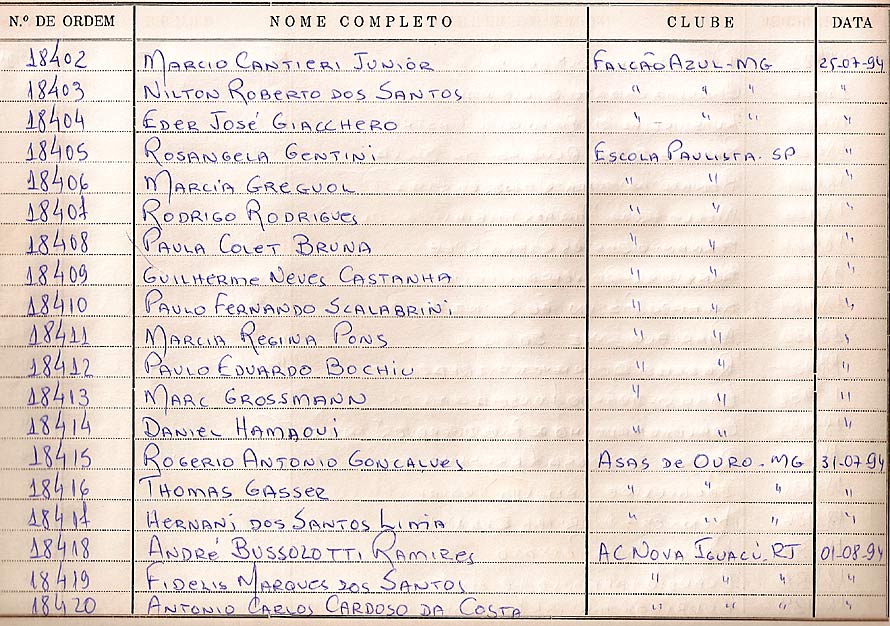 N.º DE ORDEM NOME COMPLETO CLUBE DATA
18402 MARCIO CANTIERI JUNIOR FALCÃO AZUL-MG 25-07-94
18403 NILTON ROBERTO DOS SANTOS " " " "
18404 EDER JOSÉ GIACCHERO " " " "
18405 ROSANGELA GENTINI ESCOLA PAULISTA. SP "
18406 MARCIA GREGUOL " " "
18407 RODRIGO RODRIGUES " " "
18408 PAULA COLET BRUNA " " "
18409 GUILHERME NEVES CASTANHA " " "
18410 PAULO FERNANDO SCALABRINI " " "
18411 MARCIA REGINA PONS " " "
18412 PAULO EDUARDO " " "
18413 MARC GROSSMANN " " "
18414 DANIEL HAMAOUI " " "
18415 ROGERIO ANTONIO GONCALVES ASAS DE OURO-MG 31-07-94
18416 THOMAS GASSER " " " "
18417 HERNANI DOS SANTOS LIMA " " " "
18418 ANDRÉ BUSSOLOTTI RAMIRES AC NOVA IGUACÚ.RJ 01-08-94
18419 FIDELIS MARQUES DOS SANTOS " " " " "
18420 ANTONIO CARLOS CARDOSO DA COSTA " " " " "